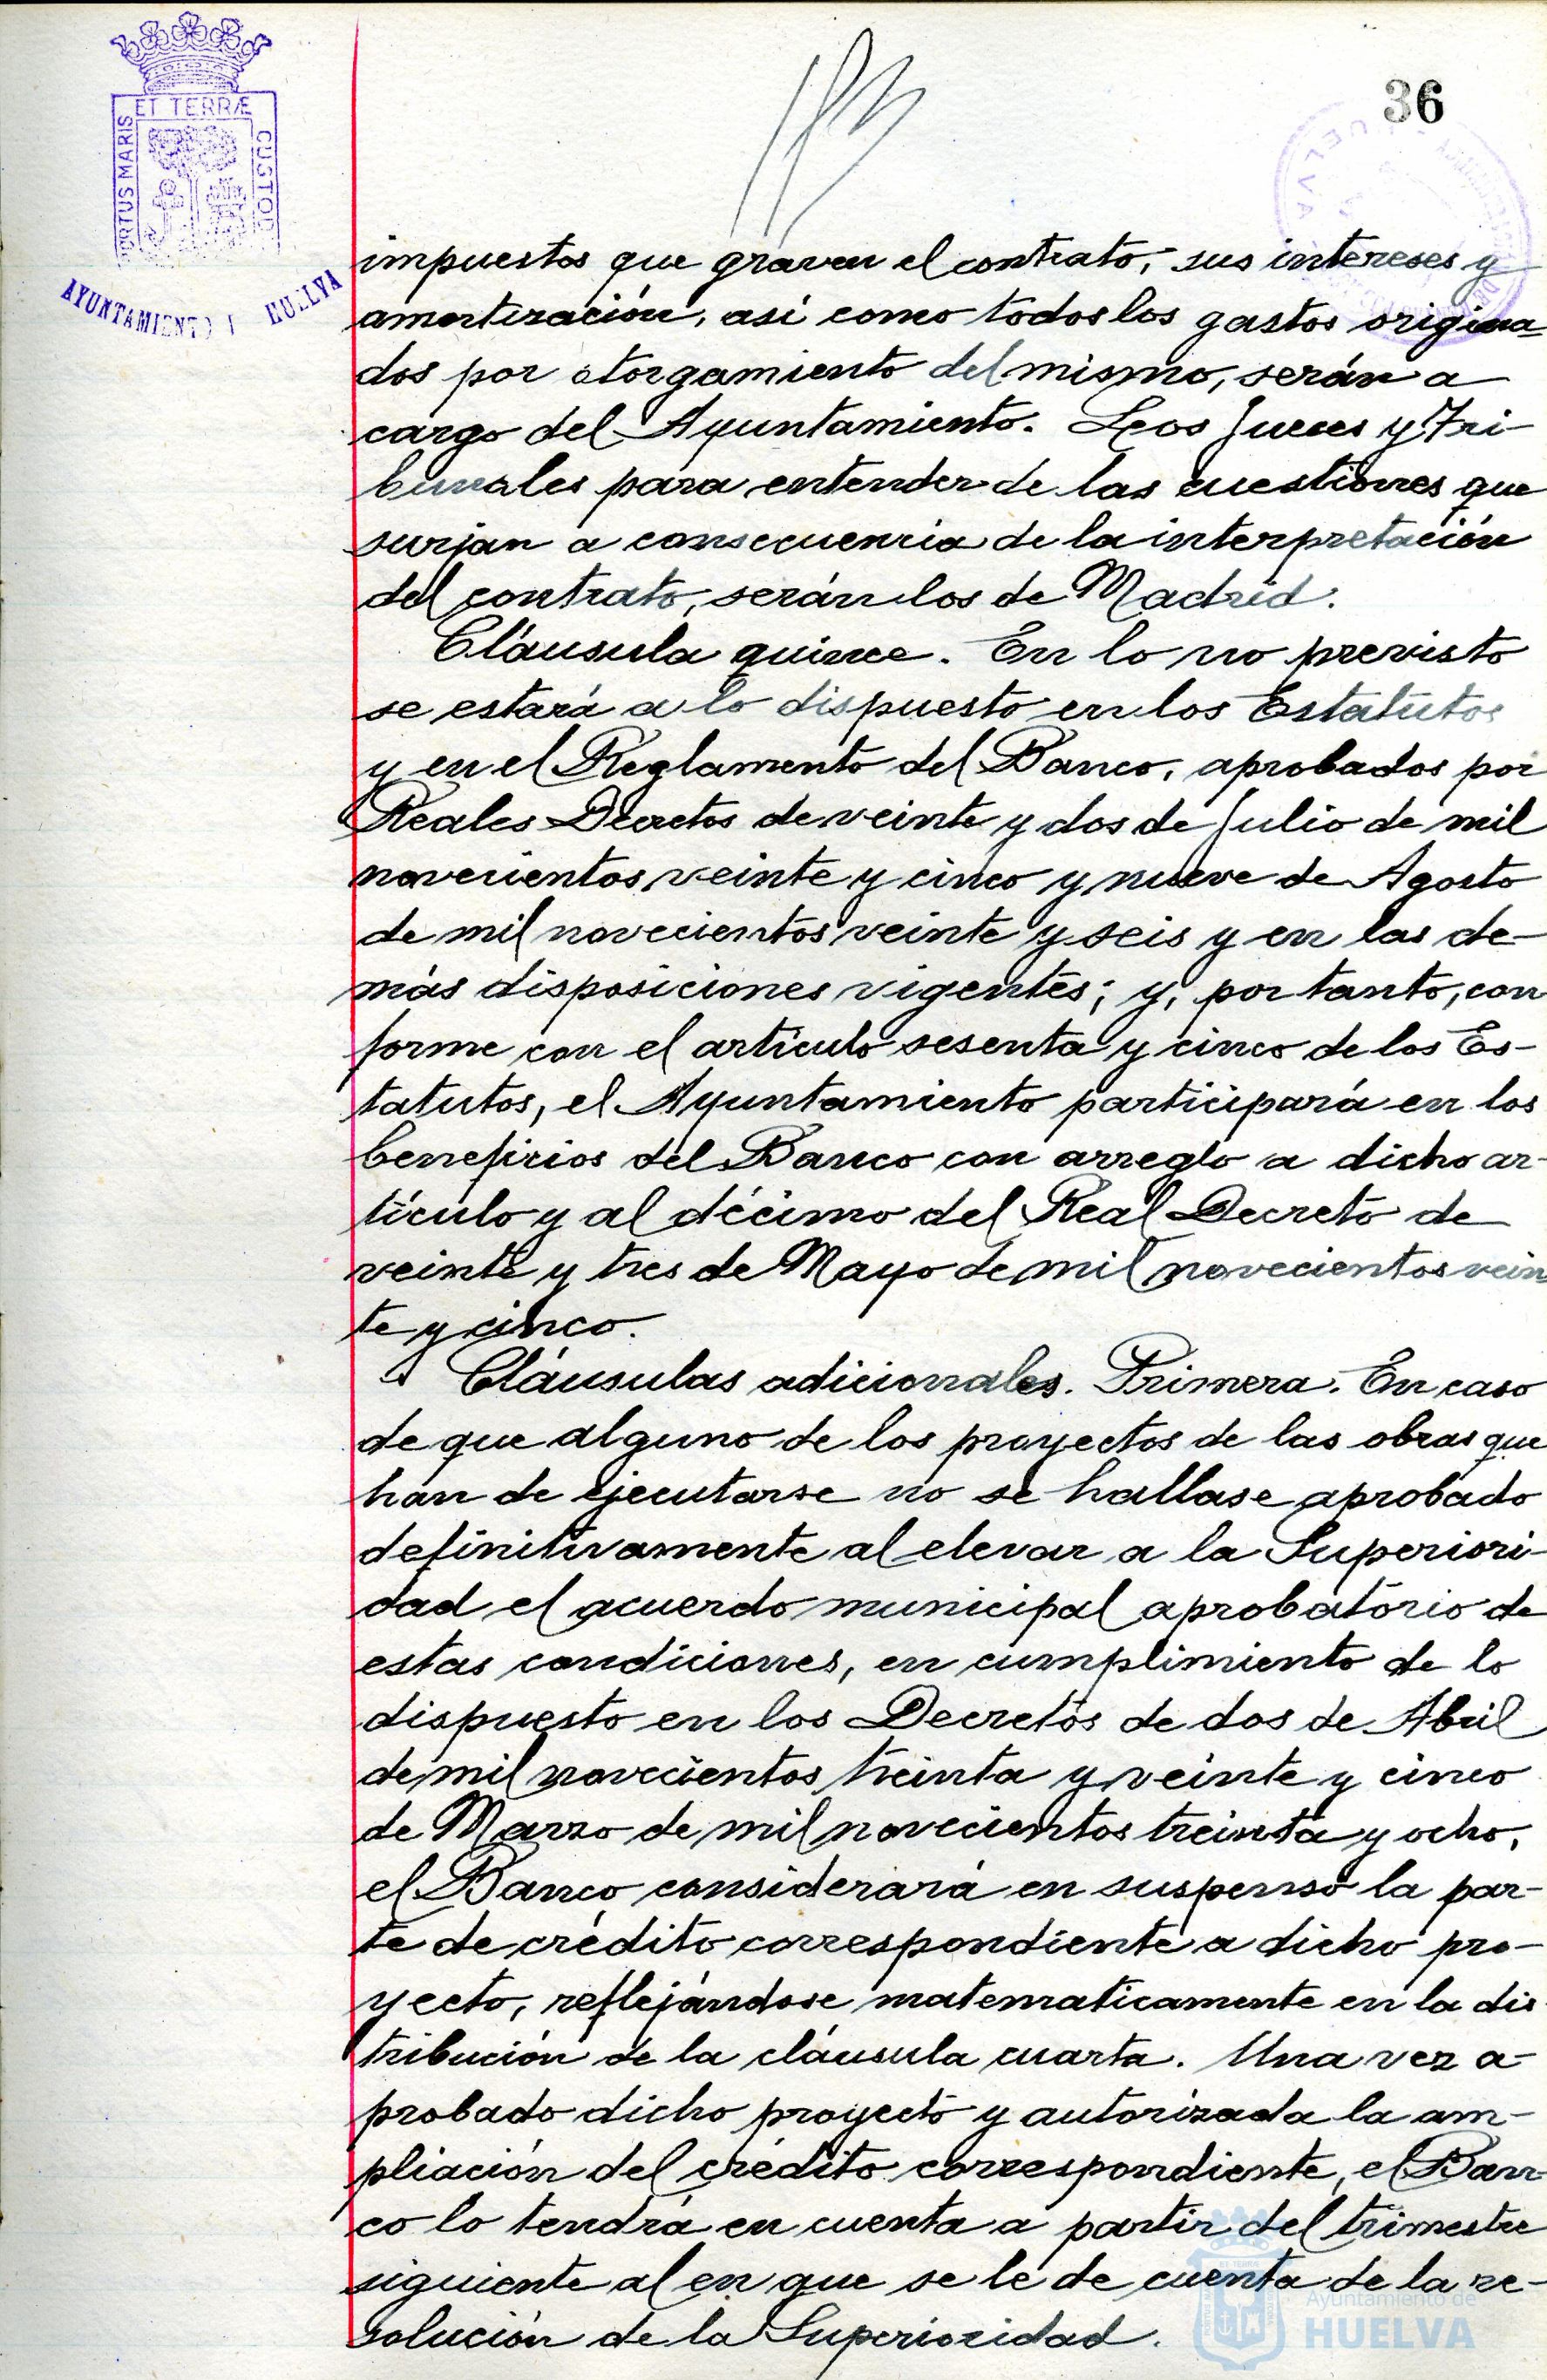 36
ET TERRÆ
PORTUS MARIS
CUSTOD
AYUNTAMIENTO HUELVA
impuestos que graven el contrato, sus intereses y
amortización, así como todos los gastos origina=
dos por otorgamiento del mismo, serán a
cargo del Ayuntamiento. Los Jueces y Tri-
bunales para entender de las cuestiones que
surjan a consecuencia de la interpretación
del contrato, serán los de Madrid.
Cláusula quince. En lo no previsto
se estará a lo dispuesto en los Estatutos
y en el Reglamento del Banco, aprobados por
Reales Decretos de veinte y dos de Julio de mil
novecientos veinte y cinco y nueve de Agosto
de mil novecientos veinte y seis y en las de-
más disposiciones vigentes; y, por tanto, con
forme con el artículo sesenta y cinco de los Es-
tatutos, el Ayuntamiento participará en los
beneficios del Banco con arreglo a dicho ar-
tículo y al décimo del Real Decreto de
veinte y tres de Mayo de mil novecientos vein
te y cinco.
Cláusulas adicionales. Primera. En caso
de que alguno de los proyectos de las obras que
han de ejecutarse no se hallase aprobado
definitivamente al elevar a la Superiori-
dad el acuerdo municipal aprobatorio de
estas condiciones, en cumplimiento de lo
dispuesto en los Decretos de dos de Abril
de mil novecientos treinta y veinte y cinco
de Marzo de mil novecientos treinta y ocho,
el Banco considerará en suspenso la par-
te de crédito correspondiente a dicho pro-
yecto, reflejándose matematicamente en la dis
tribución de la cláusula cuarta. Una vez a-
probado dicho proyecto y autorizada la am-
pliación del crédito correspondiente, el Ban-
co lo tendrá en cuenta a partir del trimestre
siguiente al en que se le de cuenta de la re-
solución de la Superioridad.
Ayuntamiento de
HUELVA